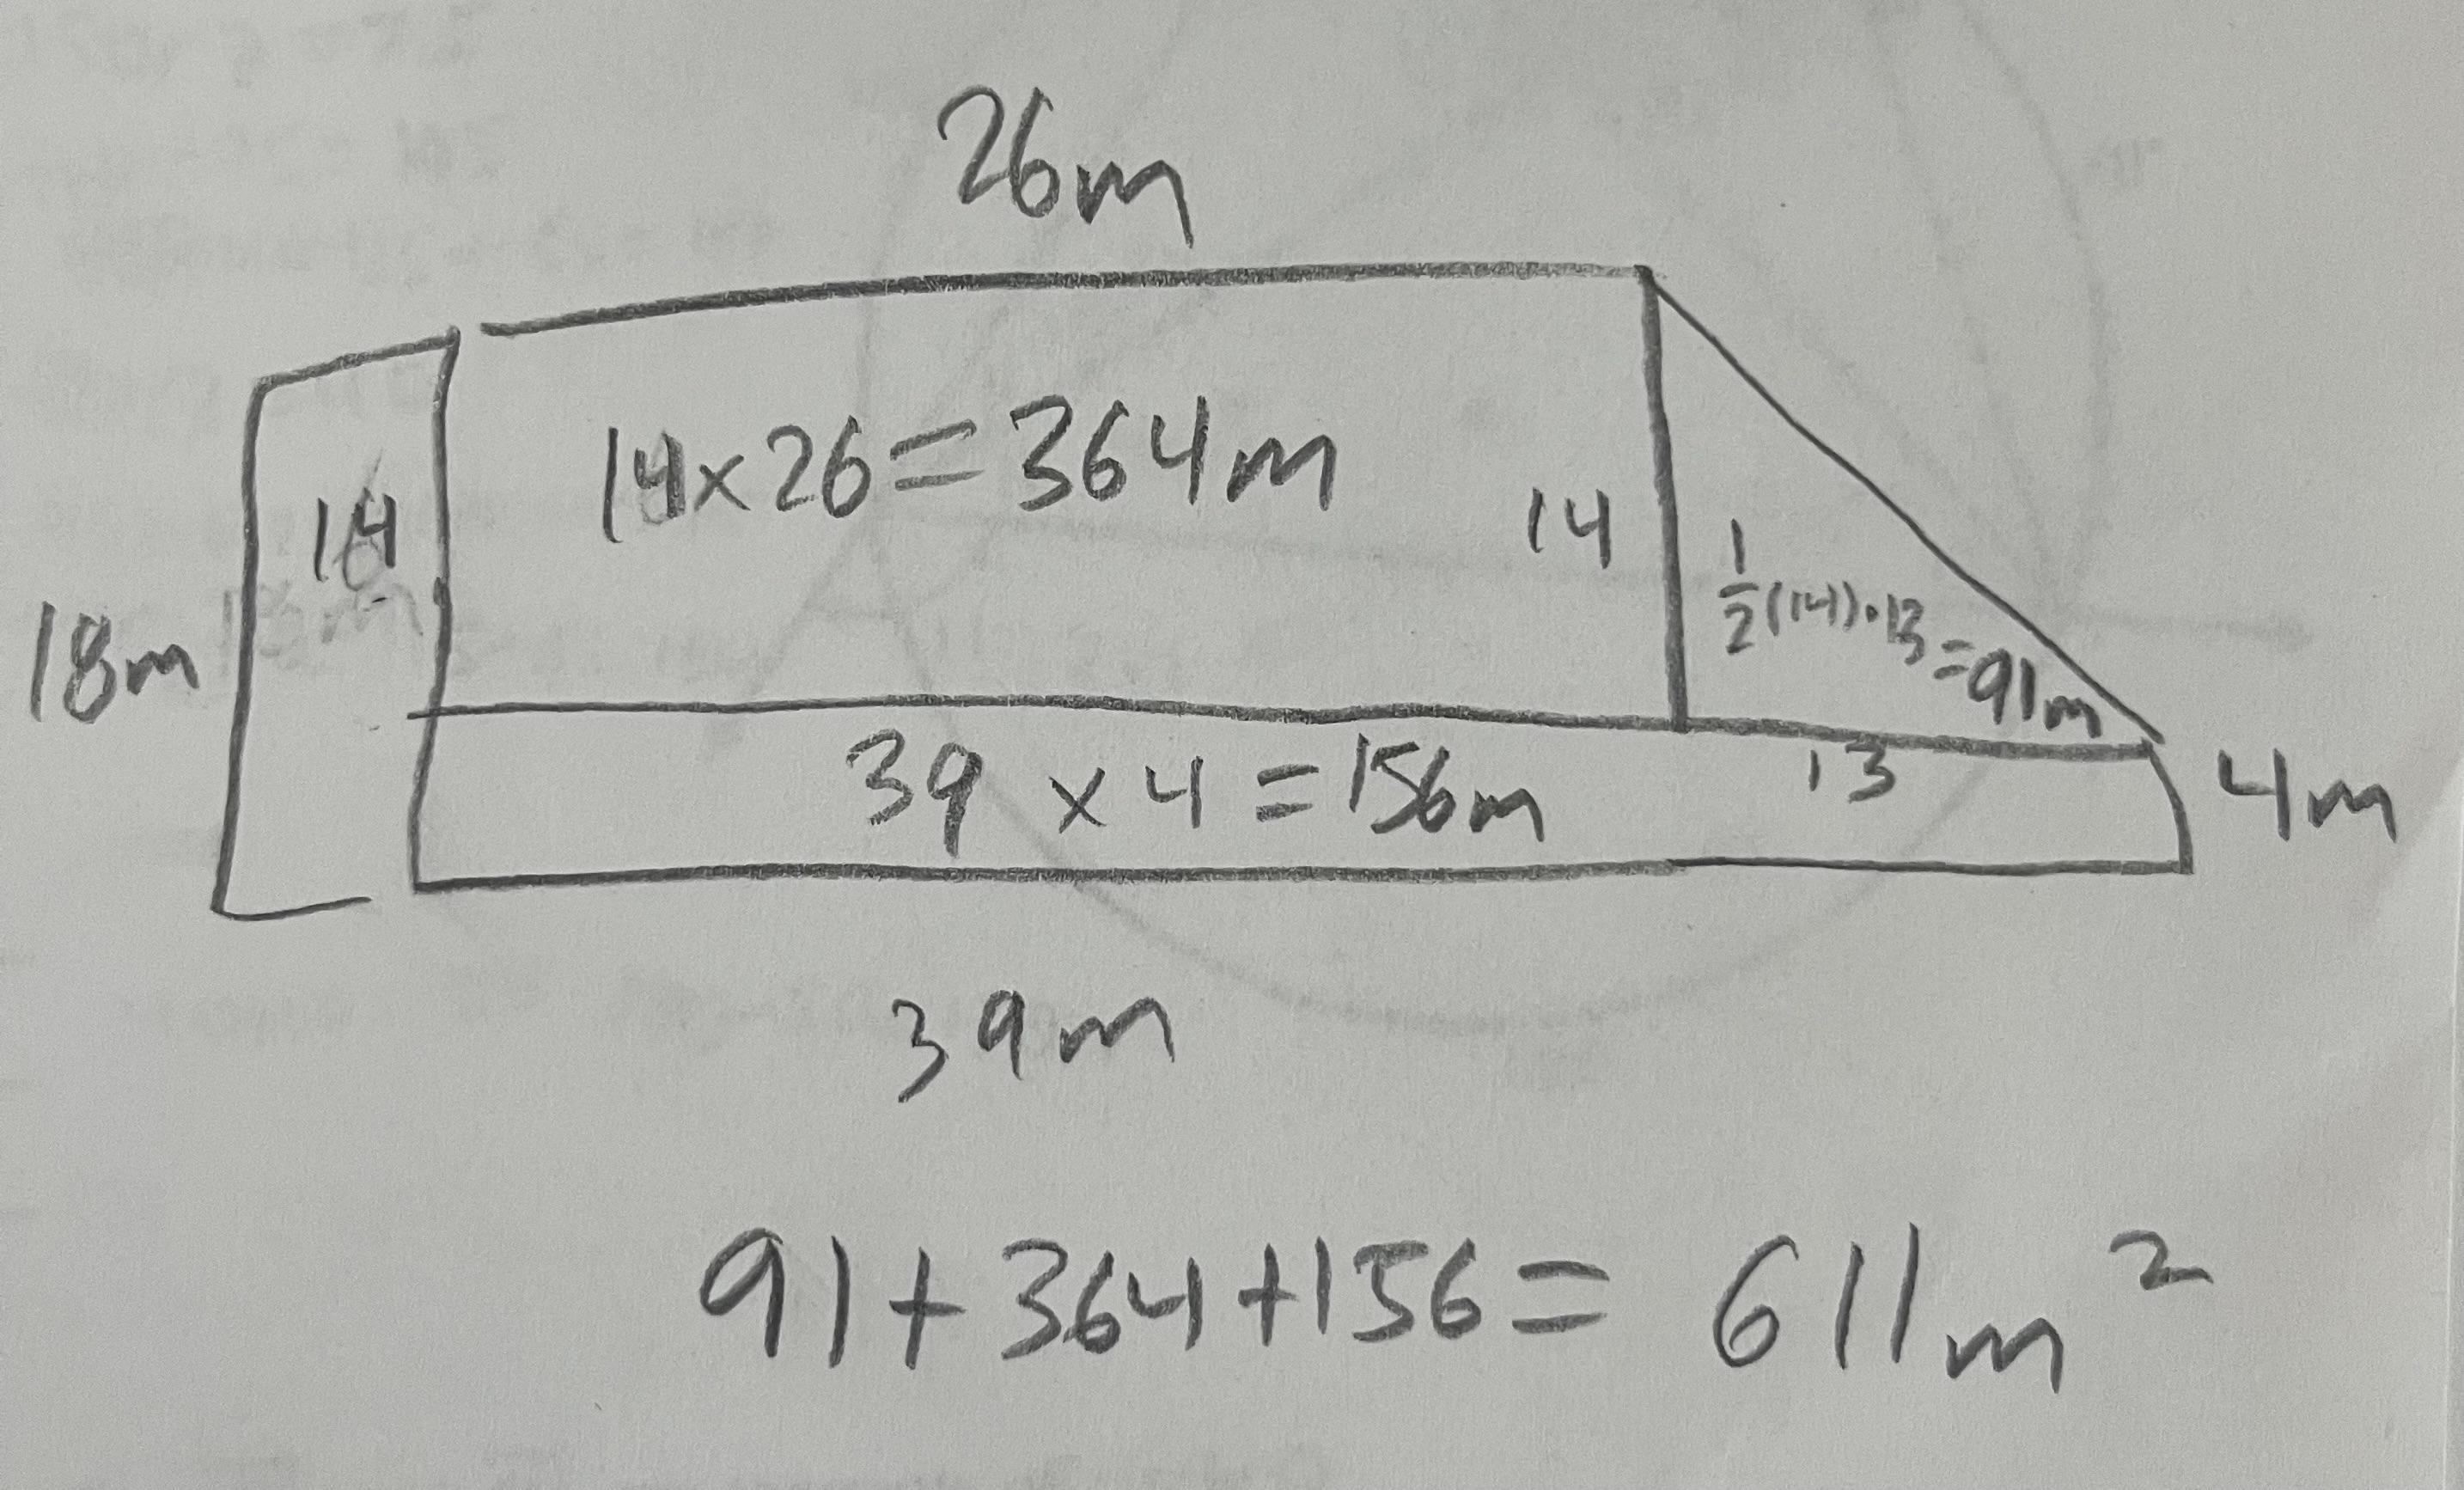 26m
14×26=364m
14
14
18m
1/2(14)·13=91m
39 × 4 = 156m
13
4m
39m
91+364+156= 611m²